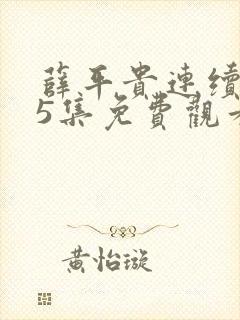 薛平貴連續
5集免費觀
黃怡璇